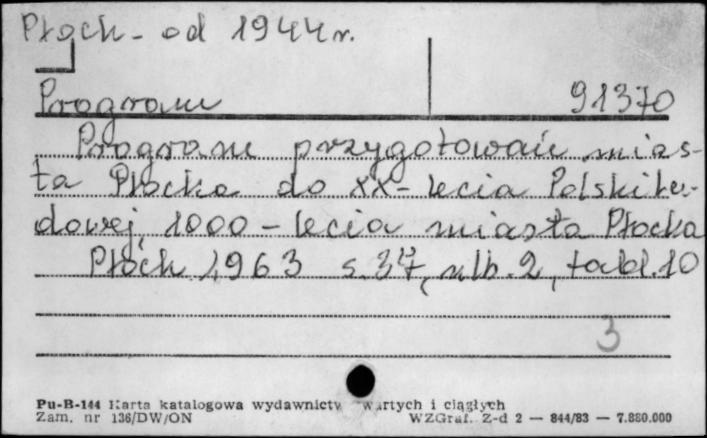 Płock - od 1944 r.
Program 91370
Program przygotowań mias-
ta Płocka do XX-lecia Polski Lu-
dowej, 1000-lecia miasta Płocka
Płock 1963 s. 37, nlb. 2, tabl. 10
3
Pu-B-144 Karta katalogowa wydawnictw zwartych i ciągłych
Zam. nr 136/DW/ON WZGraf. Z-d 2 — 844/83 — 7.880.000